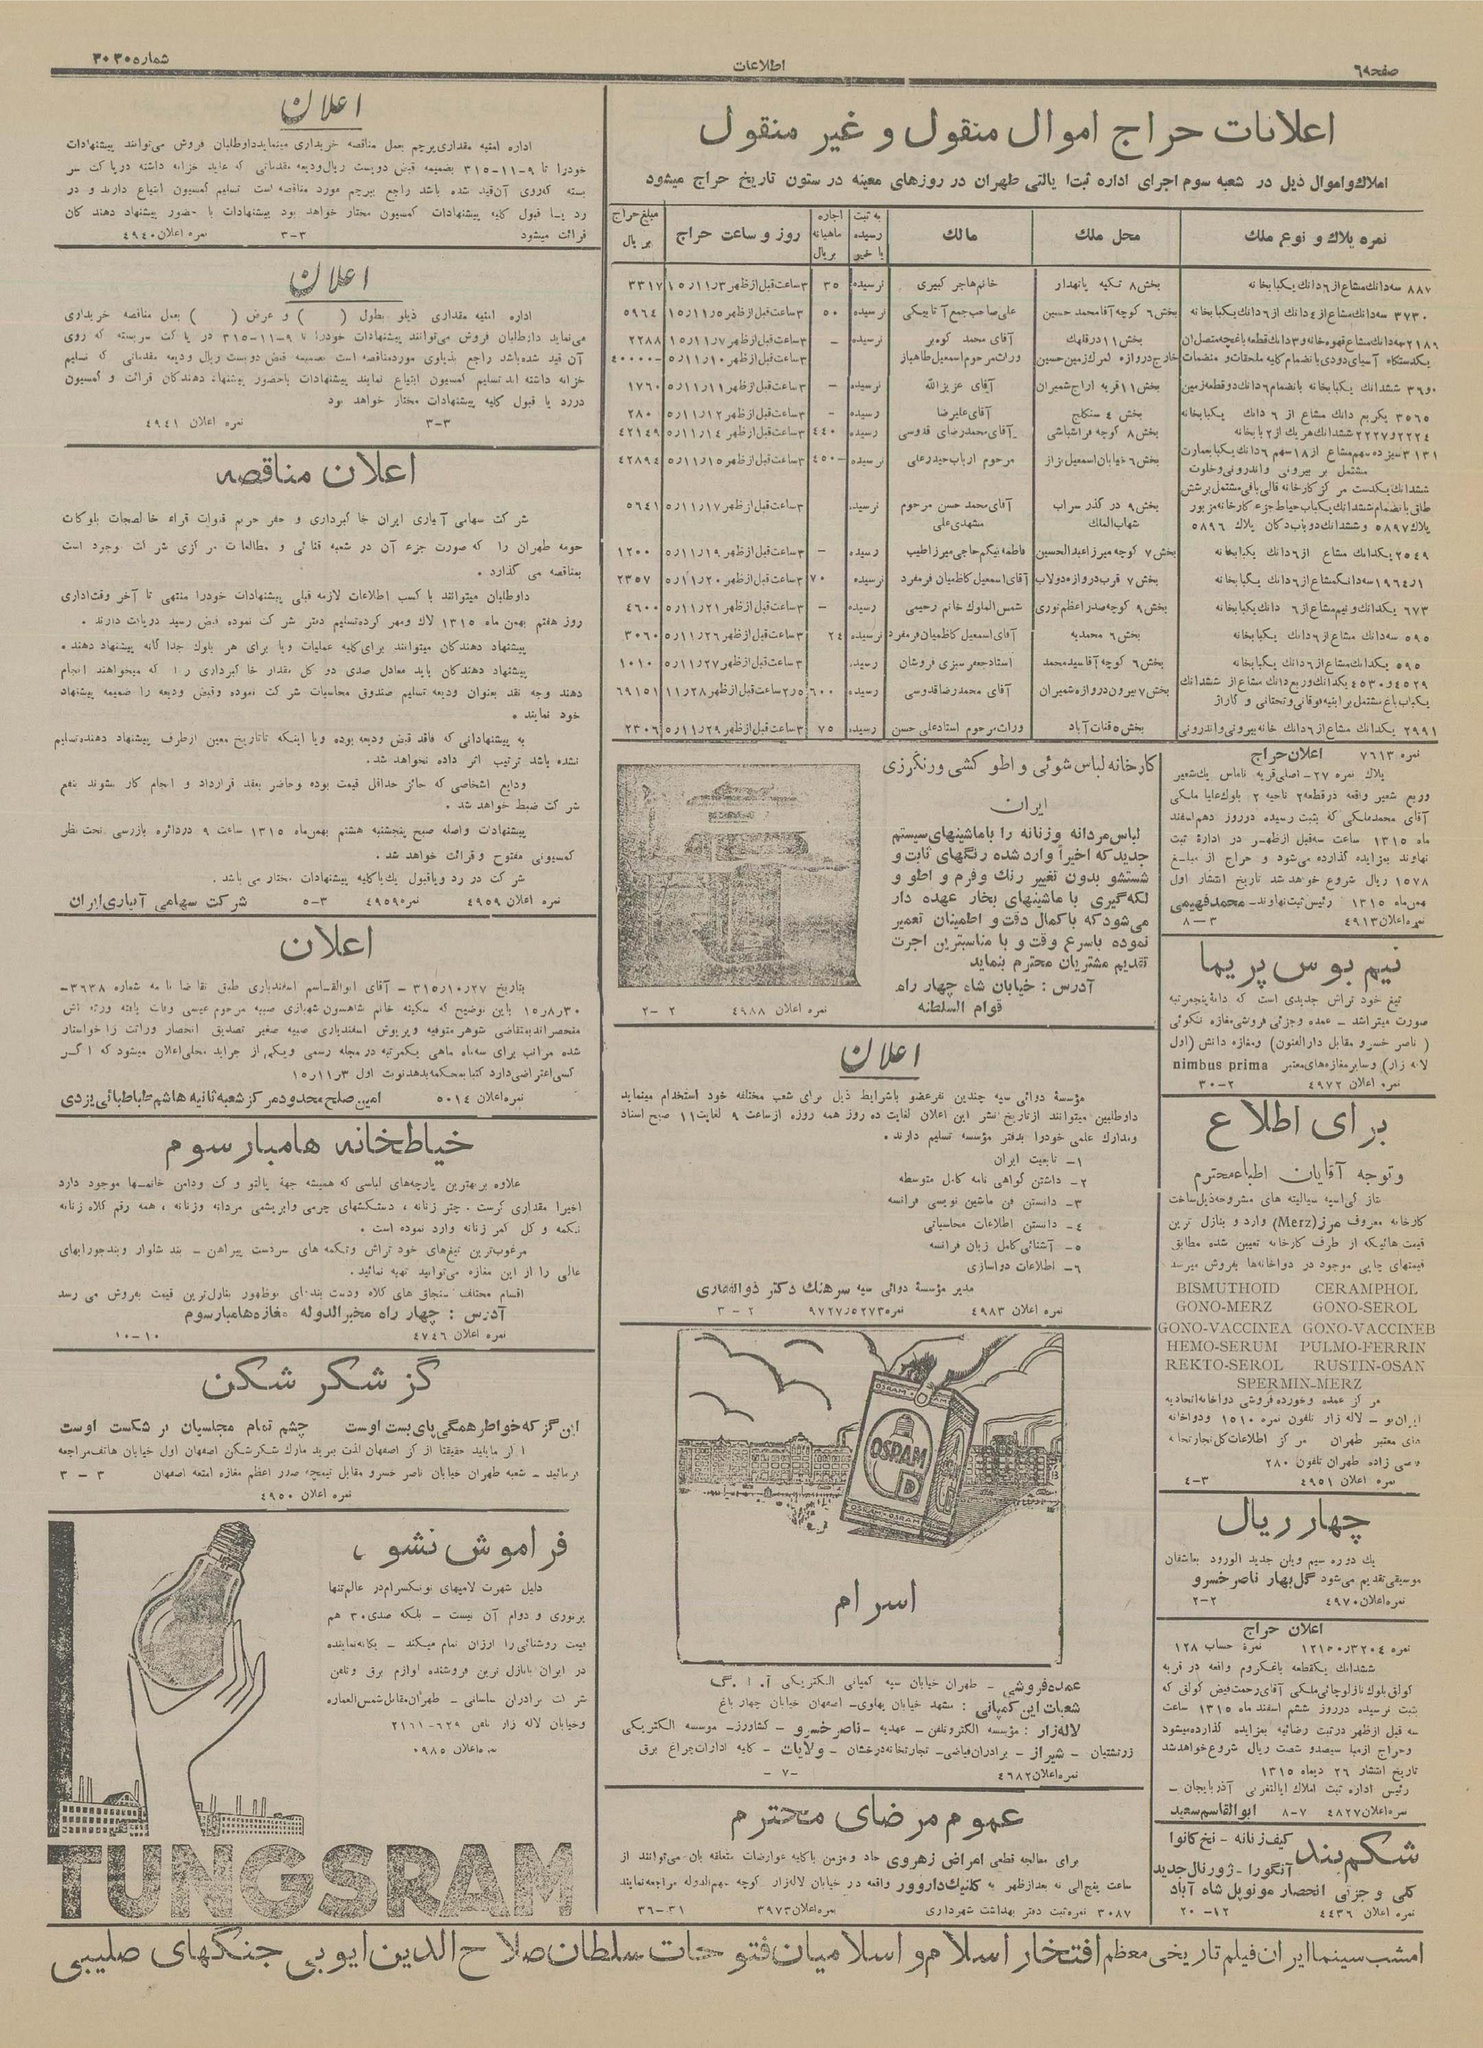 صفحه ٦
اطلاعات
شماره ۳۰۳۰
اعلانات حراج اموال منقول و غیر منقول
املاك و اموال ذیل در شعبه سوم اجرای اداره ثبت ایالتی طهران در روزهای معینه در ستون تاریخ حراج میشود
نمره پلاك و نوع ملك
محل ملك
مالك
به ثبت رسیده یا خیر
اجاره ماهیانه بریال
روز و ساعت حراج
مبلغ حراج بریال
۸۸۷ سه دانك مشاع از ٦ دانك یکبابخانه بخش ۸ تکیه پانهدار خانم هاجر کبیری نرسیده ۳٥ ۳ساعت قبل از ظهر ۱٥٫۱۱٫۳ ۳۳۱۷
۳۷۳۰ سه دانك مشاع از ٤ دانك از ٦ دانك یکبابخانه بخش ٦ کوچه آقا محمد حسین نرسیده ٥۰ ۳ساعت قبل از ظهر ۱٥٫۱۱٫٥ ٥۹٦٤
بخش ۱۱ درقلهك آقای محمد نرسیده - ۳ساعت قبل از ظهر ۱٥٫۱۱٫۷ ۲۲۸۸
بخش ۱۱ قریه اراج شمیران آقای عزیزالله نرسیده - ۳ساعت قبل از ظهر ٥٫۱۱٫۱۱ ۱۷٦۰
۳٥٦٥ یکربع دانك مشاع از ٦ دانك یکبابخانه بخش ٤ سنگلج آقای علیرضا رسیده - ۳ساعت قبل از ظهر ٥٫۱۱٫۱۲ ۲۸۰
۲۲۲٤ و ۲۲۲۷ ششدانك هر یك از ۲ بابخانه بخش ۸ کوچه فراشباشی آقای محمدرضای قدوسی رسیده ٤٤۰ ۳ساعت قبل از ظهر ٥٫۱۱٫۱٤ ٤۲۱٤۹
۳۱۳۱ سیزده سهم مشاع از ۱۸ سهم ٦ دانك یکبابعمارت بخش ٦ خیابان اسمعیل بزاز مرحوم ارباب حیدرعلی نرسیده ٤٥۰ ۳ساعت قبل از ظهر ٥٫۱۱٫۱٥ ٤۲۸۹٤
مشتمل بر بیرونی و اندرونی و خلوت
ششدانك یکدست مرکز کارخانه قالی بافی مشتمل بر شش
طاق بانضمام ششدانك یکباب حیاط جزء کارخانه مزبور بخش ۹ در گذر سراب شهاب الملك آقای محمد حسن مرحوم مشهدی علی نرسیده ۳ساعت قبل از ظهر ٥٫۱۱٫۱۷ ٥٦٤۱
پلاك ٥۸۹۷ و ششدانك دو باب دکان پلاك ٥۸۹٦
۲٥٤۹ یکدانك مشاع از ٦ دانك یکبابخانه بخش ۷ کوچه میرزا عبدالحسین فاطمه بیگم حاجی میرزا طیب رسیده - ۳ساعت قبل از ظهر ٥٫۱۱٫۱۹ ۱۲۰۰
۱٫۱۹٦٤ سه دانگ مشاع از ٦ دانك یکبابخانه بخش ۷ قرب دروازه دولاب آقای اسمعیل کاظمیان فرمفرد نرسیده ۷۰ ۳ساعت قبل از ظهر ٥٫۱۱٫۲۰ ۲۳٥۷
٦۷۳ یکدانك و نیم مشاع از ٦ دانك یکبابخانه بخش ۹ کوچه صدر اعظم نوری شمس الملوك خانم رحیمی رسیده - ۳ساعت قبل از ظهر ٥٫۱۱٫۲۱ ٤٦۰۰
٥۹٥ سه دانك مشاع از ٦ دانك یکبابخانه بخش ٦ محمدیه آقای اسمعیل کاظمیان فرمفرد نرسیده ۲٤ ۳ساعت قبل از ظهر ٥٫۱۱٫۲٦ ۳۰٦۰
٥۹٥ یکدانك مشاع از ٦ دانك یکبابخانه بخش ٦ کوچه آقا سید محمد استاد جعفر سبزی فروشان رسیده ۳ساعت قبل از ظهر ٥٫۱۱٫۲۷ ۱۰۱۰
٤٥۲۹ و ٤٥۳۰ یکدانك و ربع دانك مشاع از ششدانك بخش ۷ بیرون دروازه شمیران آقای محمدرضا قدوسی رسیده ٦۰۰ ۲٫٥ ساعت قبل از ظهر ۱۱٫۲۸ ٦۹۱٥۱
یکباب باغ مشتمل بر ابنیه فوقانی و تحتانی و گاراژ
۲۹۹۱ یکدانك مشاع از ٦ دانك خانه بیرونی و اندرونی بخش ٥ قنات آباد وراث مرحوم استاد علی حسن رسیده ۷٥ ۳ساعت قبل از ظهر ٥٫۱۱٫۲۹ ۲۳۰٦
نمره ۷٦۱۳ اعلان حراج
پلاك نمره ۲۷ - اصلی قریه ناماس یك شعیر
و ربع شعیر واقعه در قطعه ۲ ناحیه ۲ بلوك علیا ملکی
آقای محمد ملکی که بثبت رسیده در روز دهم اسفند
ماه ۱۳۱٥ ساعت سه قبل از ظهر در اداره ثبت
نهاوند بمزایده گذارده می‌شود و حراج از مبلغ
۱٥۷۸ ریال شروع خواهد شد تاریخ انتشار اول
بهمن ماه ۱۳۱٥ رئیس ثبت نهاوند - محمد فهیمی
نمره اعلان ٤۹۱۳ ۳—۸
نیم بوس پریما
تیغ خود تراش جدیدی است که دانهٔ پنجمرتبه
صورت میتراشد - عمده و جزئی فروشی مغازه نیکوئی
(ناصر خسرو مقابل دارالفنون) و مغازه دانش (اول
لاله زار) و سایر مغازه‌های معتبر nimbus prima
نمره اعلان ٤۹۷۲ ۲-۳۰
برای اطلاع
و توجه آقایان اطباء محترم
کارخانه معروف مرز (Merz) وارد و بنازل ترین
قیمت هائیکه از طرف کارخانه تعیین شده مطابق
قیمتهای چاپی موجود در دواخانه‌ها بفروش میرسد
BISMUTHOID CERAMPHOL
GONO-MERZ GONO-SEROL
GONO-VACCINEA GONO-VACCINEB
HEMO-SERUM PULMO-FERRIN
REKTO-SEROL RUSTIN-OSAN
SPERMIN-MERZ
مرکز عمده و خورده فروشی دواخانه اتحادیه
ایران نو - لاله زار تلفون نمره ۱٥۱۰ و دواخانه
های معتبر طهران مرکز اطلاعات کل تجارتخانه
طهران تلفون ۲۸۰
نمره اعلان ٤۹٥۱ ۳-٤
چهار ریال
یك دوره سیم ویلن جدید الورود بعاشقان
موسیقی تقدیم می‌شود گل بهار ناصر خسرو
نمره اعلان ٤۹۷۰ ۲-۲
اعلان حراج
نمره ۱۲۱٥۰٫۳۲۰٤ نمره حساب ۱۲۸
ششدانك یکقطعه باغ کروم واقعه در قریه
ثبت نرسیده در روز ششم اسفند ماه ۱۳۱٥ ساعت
سه قبل از ظهر در ثبت رضائیه بمزایده گذارده میشود
و حراج از مبلغ سیصد و شصت ریال شروع خواهد شد
تاریخ انتشار ۲٦ دیماه ۱۳۱٥
رئیس اداره ثبت املاك ایالتی غربی آذربایجان -
نمره اعلان ٤۸۲۷ ۷-۸ ابوالقاسم سعید
شکم بند کیف زنانه - نخ کانوا
آنگورا - ژورنال جدید
کلی و جزئی انحصار مونوپل شاه آباد
نمره اعلان ٤٤۳٦ ۱۲-۲۰
کارخانه لباس شوئی و اطو کشی و رنگرزی
ایران
لباس مردانه و زنانه را با ماشینهای سیستم
جدید که اخیراً وارد شده رنگهای ثابت و
شستشو بدون تغییر رنك و فرم و اطو و
لکه گیری با ماشینهای بخار عهده دار
می‌شود که با کمال دقت و اطمینان تعمیر
نموده باسرع وقت و با مناسبترین اجرت
تقدیم مشتریان محترم بنماید
آدرس : خیابان شاه چهار راه
قوام السلطنه
نمره اعلان ٤۹۸۸ ۲-۲
اعلان
مؤسسهٔ دوائی سپه چندین نفر عضو باشرایط ذیل برای شعب مختلفه خود استخدام مینماید
داوطلبین میتوانند از تاریخ نشر این اعلان لغایت ده روز همه روزه از ساعت ۹ لغایت ۱۱ صبح اسناد
و مدارك علمی خود را بدفتر مؤسسه تسلیم دارند.
۱- تابعیت ایران
۲- داشتن گواهی نامه کامل متوسطه
۳- دانستن فن ماشین نویسی فرانسه
٤- دانستن اطلاعات محاسباتی
٥- آشنائی کامل زبان فرانسه
٦- اطلاعات دواسازی
مدیر مؤسسهٔ دوائی سپه سرهنك دکتر ذوالفقاری
نمره اعلان ٤۹۸۳ نمره ۹۷۲۷٫٥۲۷۳ ۲-۳
OSRAM
OSRAM
D
OSRAM
اسرام
عمده فروشی - طهران خیابان سپه کمپانی الکتریکی آ. ا. گ
شعبات این کمپانی : مشهد خیابان پهلوی - اصفهان خیابان چهار باغ
لاله زار : مؤسسه الکتروتلفن - عهدیه - ناصر خسرو - کشاورز - موسسه الکتریکی
زرتشتیان - شیراز - برادران فیاضی - تجارتخانه درخشان - ولایات - کلیه ادارات چراغ برق
نمره اعلان ٤٦۸۲ -۷-
عموم مرضای محترم
برای معالجه قطعی امراض زهروی حاد و مزمن با کلیه عوارضات متعلقه بان می‌توانند از
ساعت پنج الی نه بعد از ظهر به کلنیك داروور واقعه در خیابان لاله زار کوچه مهم الدوله مراجعه نمایند
۳۰۸۷ نمره ثبت دفتر بهداشت شهرداری نمره اعلان ۳۹۷۳ ۳۱-۳٦
اعلان
اداره امنیه مقداری پرچم بعمل مناقصه خریداری مینماید داوطلبان فروش می‌توانند پیشنهادات
خود را تا ۹-۱۱-۳۱٥ بضمیمه قبض دویست ریال ودیعه مقدماتی که عاید خزانه داشته در پاکت سر
بسته که روی آن قید شده باشد راجع بپرچم مورد مناقصه است تسلیم کمسیون ابتیاع دارند و در
رد یا قبول کلیه پیشنهادات کمسیون مختار خواهد بود پیشنهادات با حضور پیشنهاد دهندگان
قرائت میشود ۳-۳ نمره اعلان ٤۹٤۰
اعلان
اداره امنیه مقداری ذیلو بطول ( ) و عرض ( ) بعمل مناقصه خریداری
می‌نماید داوطلبان فروش می‌توانند پیشنهادات خود را تا ۹-۱۱-۳۱٥ در پاکت سربسته که روی
آن قید شده باشد راجع بذیلوی مورد مناقصه است بضمیمه قبض دویست ریال ودیعه مقدماتی که تسلیم
خزانه داشته اند تسلیم کمسیون ابتیاع نمایند پیشنهادات باحضور پیشنهاد دهندگان قرائت و کمسیون
در رد یا قبول کلیه پیشنهادات مختار خواهد بود
۳-۳ نمره اعلان ٤۹٤۱
اعلان مناقصه
شرکت سهامی آبیاری ایران خاکبرداری و حفر حریم قنوات قراء خالصجات بلوکات
حومه طهران را که صورت جزء آن در شعبه فنی و مطالعات مرکزی شرکت موجود است
بمناقصه می گذارد.
داوطلبان میتوانند با کسب اطلاعات لازمه قبلی پیشنهادات خود را منتهی تا آخر وقت اداری
روز هفتم بهمن ماه ۱۳۱٥ لاك و مهر کرده تسلیم دفتر شرکت نموده قبض رسید دریافت دارند.
پیشنهاد دهندگان میتوانند برای کلیه عملیات و یا برای هر بلوك جداگانه پیشنهاد دهند.
پیشنهاد دهندگان باید معادل صدی دو کل مقدار خاکبرداری را که میخواهند انجام
دهند وجه نقد بعنوان ودیعه تسلیم صندوق محاسبات شرکت نموده و قبض ودیعه را ضمیمه پیشنهاد
خود نمایند.
به پیشنهاداتی که فاقد قبض ودیعه بوده و یا اینکه تا تاریخ معین از طرف پیشنهاد دهنده تسلیم
نشده باشد ترتیب اثر داده نخواهد شد.
ودایع اشخاصی که حائز حداقل قیمت بوده و حاضر بعقد قرارداد و انجام کار نشوند بنفع
شرکت ضبط خواهد شد.
پیشنهادات واصله صبح پنجشنبه هشتم بهمن ماه ۱۳۱٥ ساعت ۹ در دائره بازرسی تحت نظر
کمسیونی مفتوح و قرائت خواهد شد.
شرکت در رد و یا قبول یك یا کلیه پیشنهادات مختار می باشد.
نمره اعلان ٤۹٥۹ نمره ٤۹٥۹ ۳-٥ شرکت سهامی آبیاری ایران
اعلان
بتاریخ ۳۱٥٫۱۰٫۲۷ - آقای ابوالقاسم اسفندیاری طبق تقاضا نامه شماره ۳٦۳۸-
۱٥٫۸٫۳۰ باین توضیح که سکینه خانم شاهسون شهبازی صبیه مرحوم عیسی وفات یافته ورثه اش
منحصراند بتقاضی شوهر متوفیه و پریوش اسفندیاری صبیه صغیر تصدیق انحصار وراثت را خواستار
شده مراتب برای سه ماه ماهی یکمرتبه در مجله رسمی و یکی از جراید محلی اعلان میشود که اگر
کسی اعتراضی دارد کتبا بمحکمه بدهد نوبت اول ۱٥٫۱۱٫۳
نمره اعلان ٥۰۱٤ امین صلح محدود مرکز شعبه ثانیه هاشم طباطبائی یزدی
خیاطخانه هامبارسوم
علاوه بر بهترین پارچه‌های لباسی که همیشه جهة پالتو و کت و دامن خانمها موجود دارد
اخیرا مقداری کرست، چتر زنانه، دستکشهای چرمی و ابریشمی مردانه و زنانه، همه رقم کلاه زنانه
تکمه و گل کمر زنانه وارد نموده است.
مرغوب‌ترین تیغ‌های خود تراش و تکمه های سردست پیراهن - بند شلوار و بند جورابهای
عالی را از این مغازه می‌توانید تهیه نمائید.
اقسام مختلف سنجاق های کلاه و دست بندهای نوظهور بنازل‌ترین قیمت بفروش می رسد
آدرس : چهار راه مخبرالدوله مغازه هامبارسوم
نمره اعلان ٤۷٤٦ ۱۰-۱۰
گز شکر شکن
این گز که خواطر همگی پای بست اوست چشم تمام مجلسیان بر شکست اوست
اگر مایلید حقیقتا از گز اصفهان لذت ببرید مارك شکرشکن اصفهان اول خیابان هاتف مراجعه
فرمائید - شعبه طهران خیابان ناصر خسرو مقابل تیمچه صدر اعظم مغازه امتعه اصفهان ۳-۳
نمره اعلان ٤۹٥۰
فراموش نشود
دلیل شهرت لامپهای تونگسرام در عالم تنها
پرنوری و دوام آن نیست - بلکه صدی ۳۰ هم
قیمت روشنائی را ارزان تمام میکند - یگانه نماینده
در ایران بانازل ترین فروشنده لوازم برق و تلفن
شرکت برادران ساسانی - طهران مقابل شمس العماره
و خیابان لاله زار تلفن ٦۲۹-۲۱٦۱
نمره اعلان ۰۹۸٥
TUNGSRAM
امشب سینما ایران فیلم تاریخی معظم افتخار اسلام و اسلامیان فتوحات سلطان صلاح الدین ایوبی جنگهای صلیبی